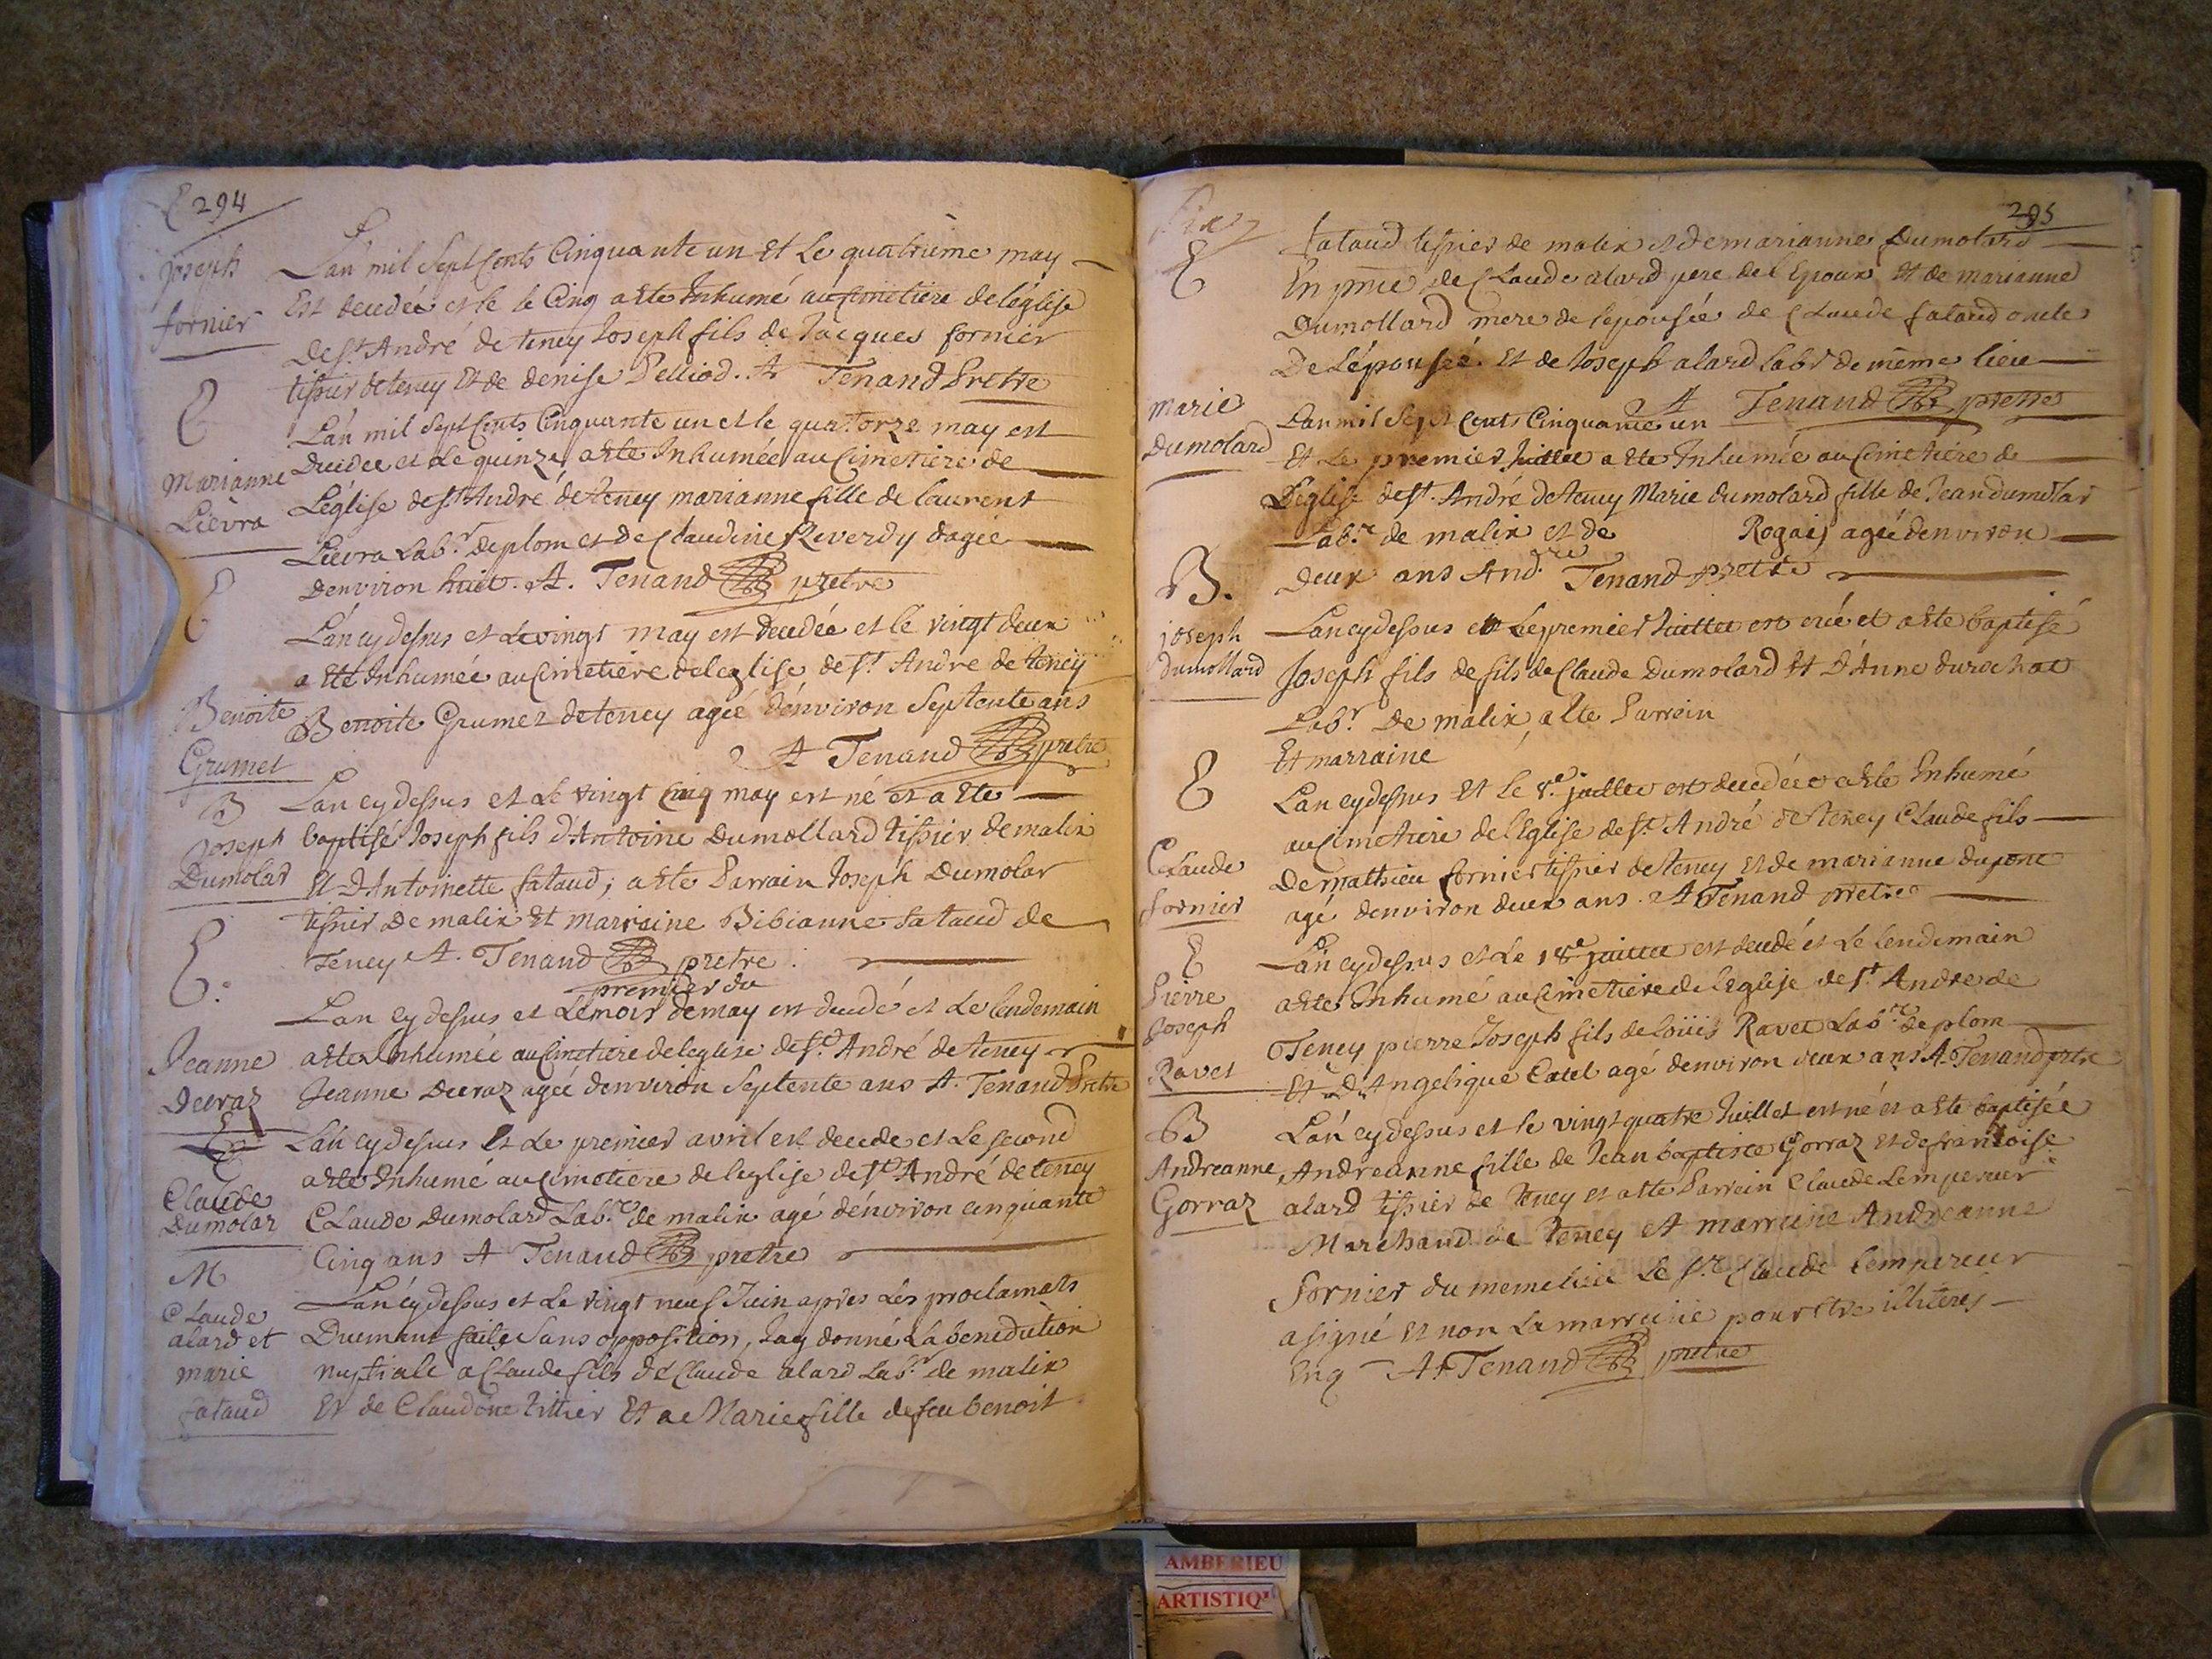 294
Joseph
fornier
L'an mil Sept Cents Cinquante un Et Le quatrieme may
Est decedée et le le Cinq a ete Inhumé au Cimetiere de l'eglise
De st. André de teney Joseph fils de Jacques fornier
tissier de teney Et de denise Pelliod. A Tenand Pretre
E
Marianne
Lièvra
L'an mil sept Cents Cinquante un et le quatorze may est
Decedee et Le quinze a ete Inhumée au Cimetiere de
L'église de st André de teney marianne fille de laurent
Lievra Lab.r de plom et de Claudine Reverdy dagée
Denviron huit. A. Tenand pretre
E
Benoite
Grumet
L'an cy dessus et Le vingt may est decedée et le vingt deux
a Ete Inhumée au Cimetiere de leglise de st André de teney
Benoite Grumet de teney agée d'environ Septente ans
A Tenand pretre
B
Joseph
Dumolar
L'an cy dessus et Le vingt Cinq may est né et a Ete
baptisé Joseph fils d'Antoine Dumollard tissier de malix
Et D'Antoinette fataud; a ete Parrain Joseph Dumolar
tissier De malix Et marraine Bibianne fataud de
Teney A. Tenand pretre
E.
Jeanne
Decraz
premier du
L'an cy dessus et Le mois de may est decedé et Le lendemain
a ete Inhumée au Cimetiere de leglise de st. André de teney
Jeanne Decraz agée denviron Septente ans A. Tenand Pretre
E
Claude
Dumolar
L'an cy dessus Et Le premier avril est decede et Le second
a ete Inhumé au Cimetiere de leglise de st André de teney
Claude Dumolard Lab.re de malix agé d'environ cinquante
Cinq ans A Tenand pretre
M
Claude
alard et
marie
fataud
L'an cy dessus et Le vingt neuf Juin apres Les proclamats
Duement faits Sans opposition, J'ay donné La benediction
nuptiale a Claude fils de Claude alard Lab.r de malix
Et de Claudine tittier Et a Marie fille de feu benoit
295
E
fataud tissier de malix et de marianne Dumolard
En pnce de Claude alard pere de l'Epoux Et de marianne
Dumollard mere de l'epousée de Claude fataud oncle
De L'épousée. Et de Joseph alard labr de même lieu
A Tenand pretre
Marie
Dumolard
L'an mil Sept Cents Cinquante un
Et Le premier Juillet a ete Inhumée au Cimetiere de
L'église de st. André de teney Marie dumolard fille de Jean dumolar
Lab.re de malix et de Rogaij agée denviron
Deux ans And.re Tenand pretre
B.
joseph
Dumollard
L'an cy dessus et Le premier Juillet est née et a ete baptisé
Joseph fils de fils de Claude Dumolard Et D'Anne durochat
Lab.r De malix, a Ete Parrein
Et marraine
E
Claude
fornier
L'an cy dessus Et le 8.e juillet est decedée a ete Inhumé
au Cimetiere de l'Eglise de st. André de teney Claude fils
De mathieu fornier tissier de teney et de marianne dupont
agé denviron deux ans. A Tenand pretre
E
Pierre
Joseph
Ravet
L'an cy dessus et Le 18e juillet est decedé et Le lendemain
a ete Inhumé au Cimetiere de l'Eglise de st. Andre de
Teney pierre Joseph fils de Loüis Ravet Lab.re de plom
Et D'Angelique Catel agé denviron deux ans A. Tenand ptre
B
Andreanne
Gorraz
L'an cy dessus et le vingt quatre Juillet est né et a ete baptisée
Andreanne fille de Jean baptiste Gorraz et de francoise
alard tissier de teney et a ete Parrein Claude Lempereur
Marchand de teney et marraine Andreanne
fornier du meme lieu Le sr. Claude Lempereur
a signé et non La marraine pour etre illiterée
Enq A. Tenand pretre
AMBERIEU
ARTISTIQ